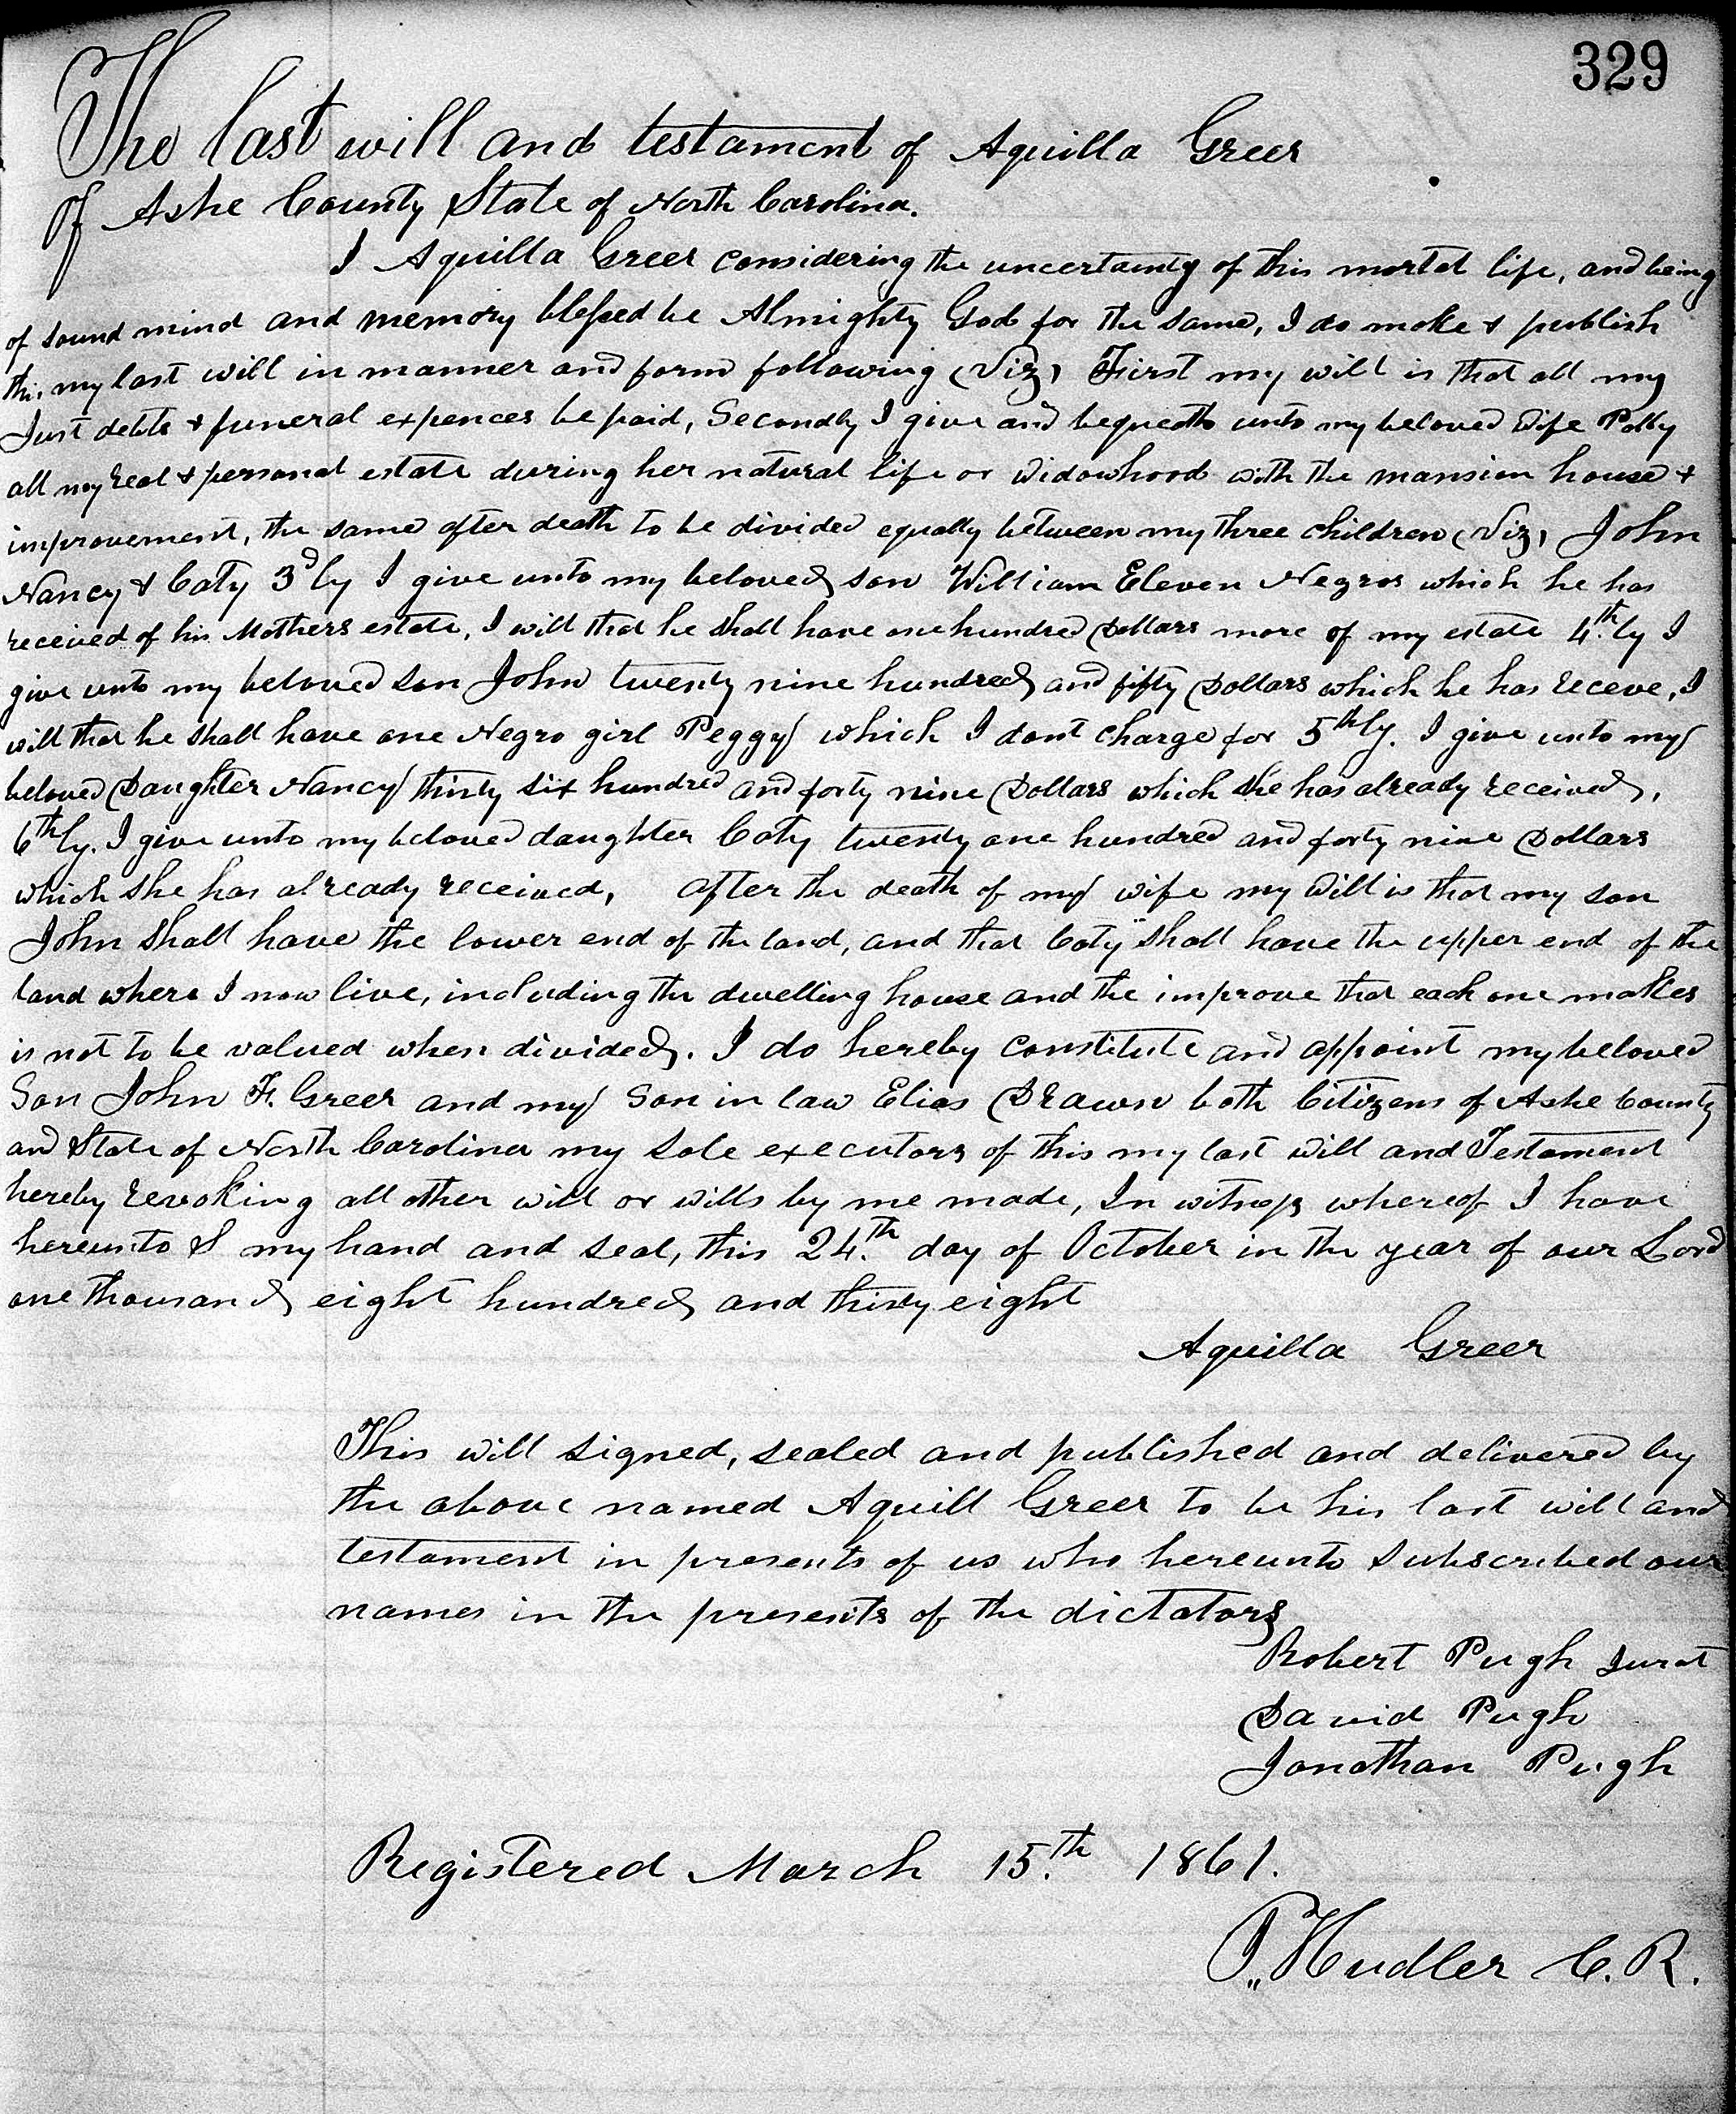 329
The last will and testament of Aquilla Greer
Of Ashe County State of North Carolina.
I Aquilla Greer considering the uncertainty of this mortal life, and being
of sound mind and memory blessed be Almighty God for the same, I do make & publish
this my last will in manner and form following (Viz) First my will is that all my
Just debts & funeral expences be paid, Secondly I give and bequeath unto my beloved Wife Polly
all my real & personal estate during her natural life or Widowhood with the mansion house &
improvement, the same after death to be divided equally between my three children (Viz) John
Nancy & Caty 3dly I give unto my beloved son William Eleven Negros which he has
received of his Mothers estate, I will that he shall have one hundred Dollars more of my estate 4thly I
give unto my beloved son John twenty nine hundred and fifty Dollars which he has receve, I
will that he shall have one Negro girl Peggy which I dont charge for 5thly. I give unto my
beloved Daughter Nancy thirty six hundred and forty nine Dollars which she has already received,
6thly. I give unto my beloved daughter Caty twenty one hundred and forty nine Dollars
which she has already received, after the death of my wife my Will is that my son
John shall have the lower end of the land, and that Caty shall have the upper end of the
land where I now live, including the dwelling house and the improve that each one makes
is not to be valued when divided. I do hereby constitute and appoint my beloved
Son John F. Greer and my Son in law Elias Drawn both Citizens of Ashe County
and State of North Carolina my sole executors of this my last Will and Testament
hereby revoking all other will or wills by me made, In witness whereof I have
hereunto S my hand and seal, this 24th day of October in the year of our Lord
one thousand eight hundred and thirty eight
Aquilla Greer
This will signed, sealed and published and delivered by
the above named Aquill Greer to be his last will and
testament in presents of us who hereunto subscribed our
names in the presents of the dictators
Robert Pugh Jurat
David Pugh
Jonathan Pugh
Registered March 15.th 1861.
J. Hudler C.R.